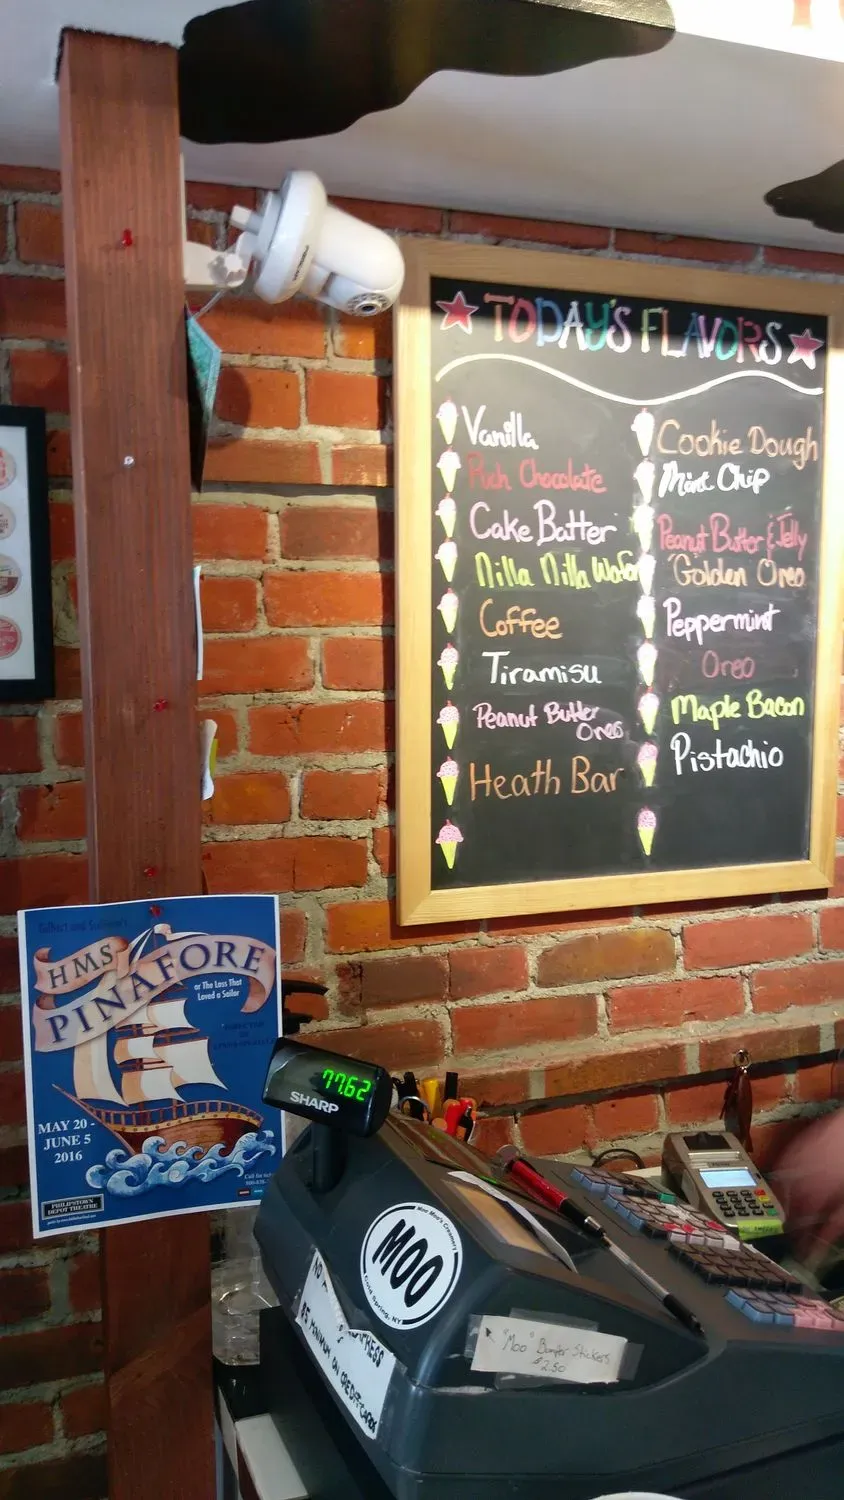 TODAY'S FLAVORS
Vanilla
Rich Chocolate
Cake Batter
Nilla Nilla Wafer
Coffee
Tiramisu
Peanut Butter
Oreo
Heath Bar
Cookie Dough
Mint Chip
Peanut Butter & Jelly
Golden Oreo
Peppermint
Oreo
Maple Bacon
Pistachio
Gilbert and Sullivan's
HMS
PINAFORE
or The Lass That
Loved a Sailor
MAY 20 -
JUNE 5
2016
PHILIPSTOWN
DEPOT THEATRE
77.62
SHARP
Moo Moo's Creamery
MOO
Cold Spring, NY
"Moo" Bumper Stickers
$2.50
NO
$5 MINIMUM ON CREDIT CARDS